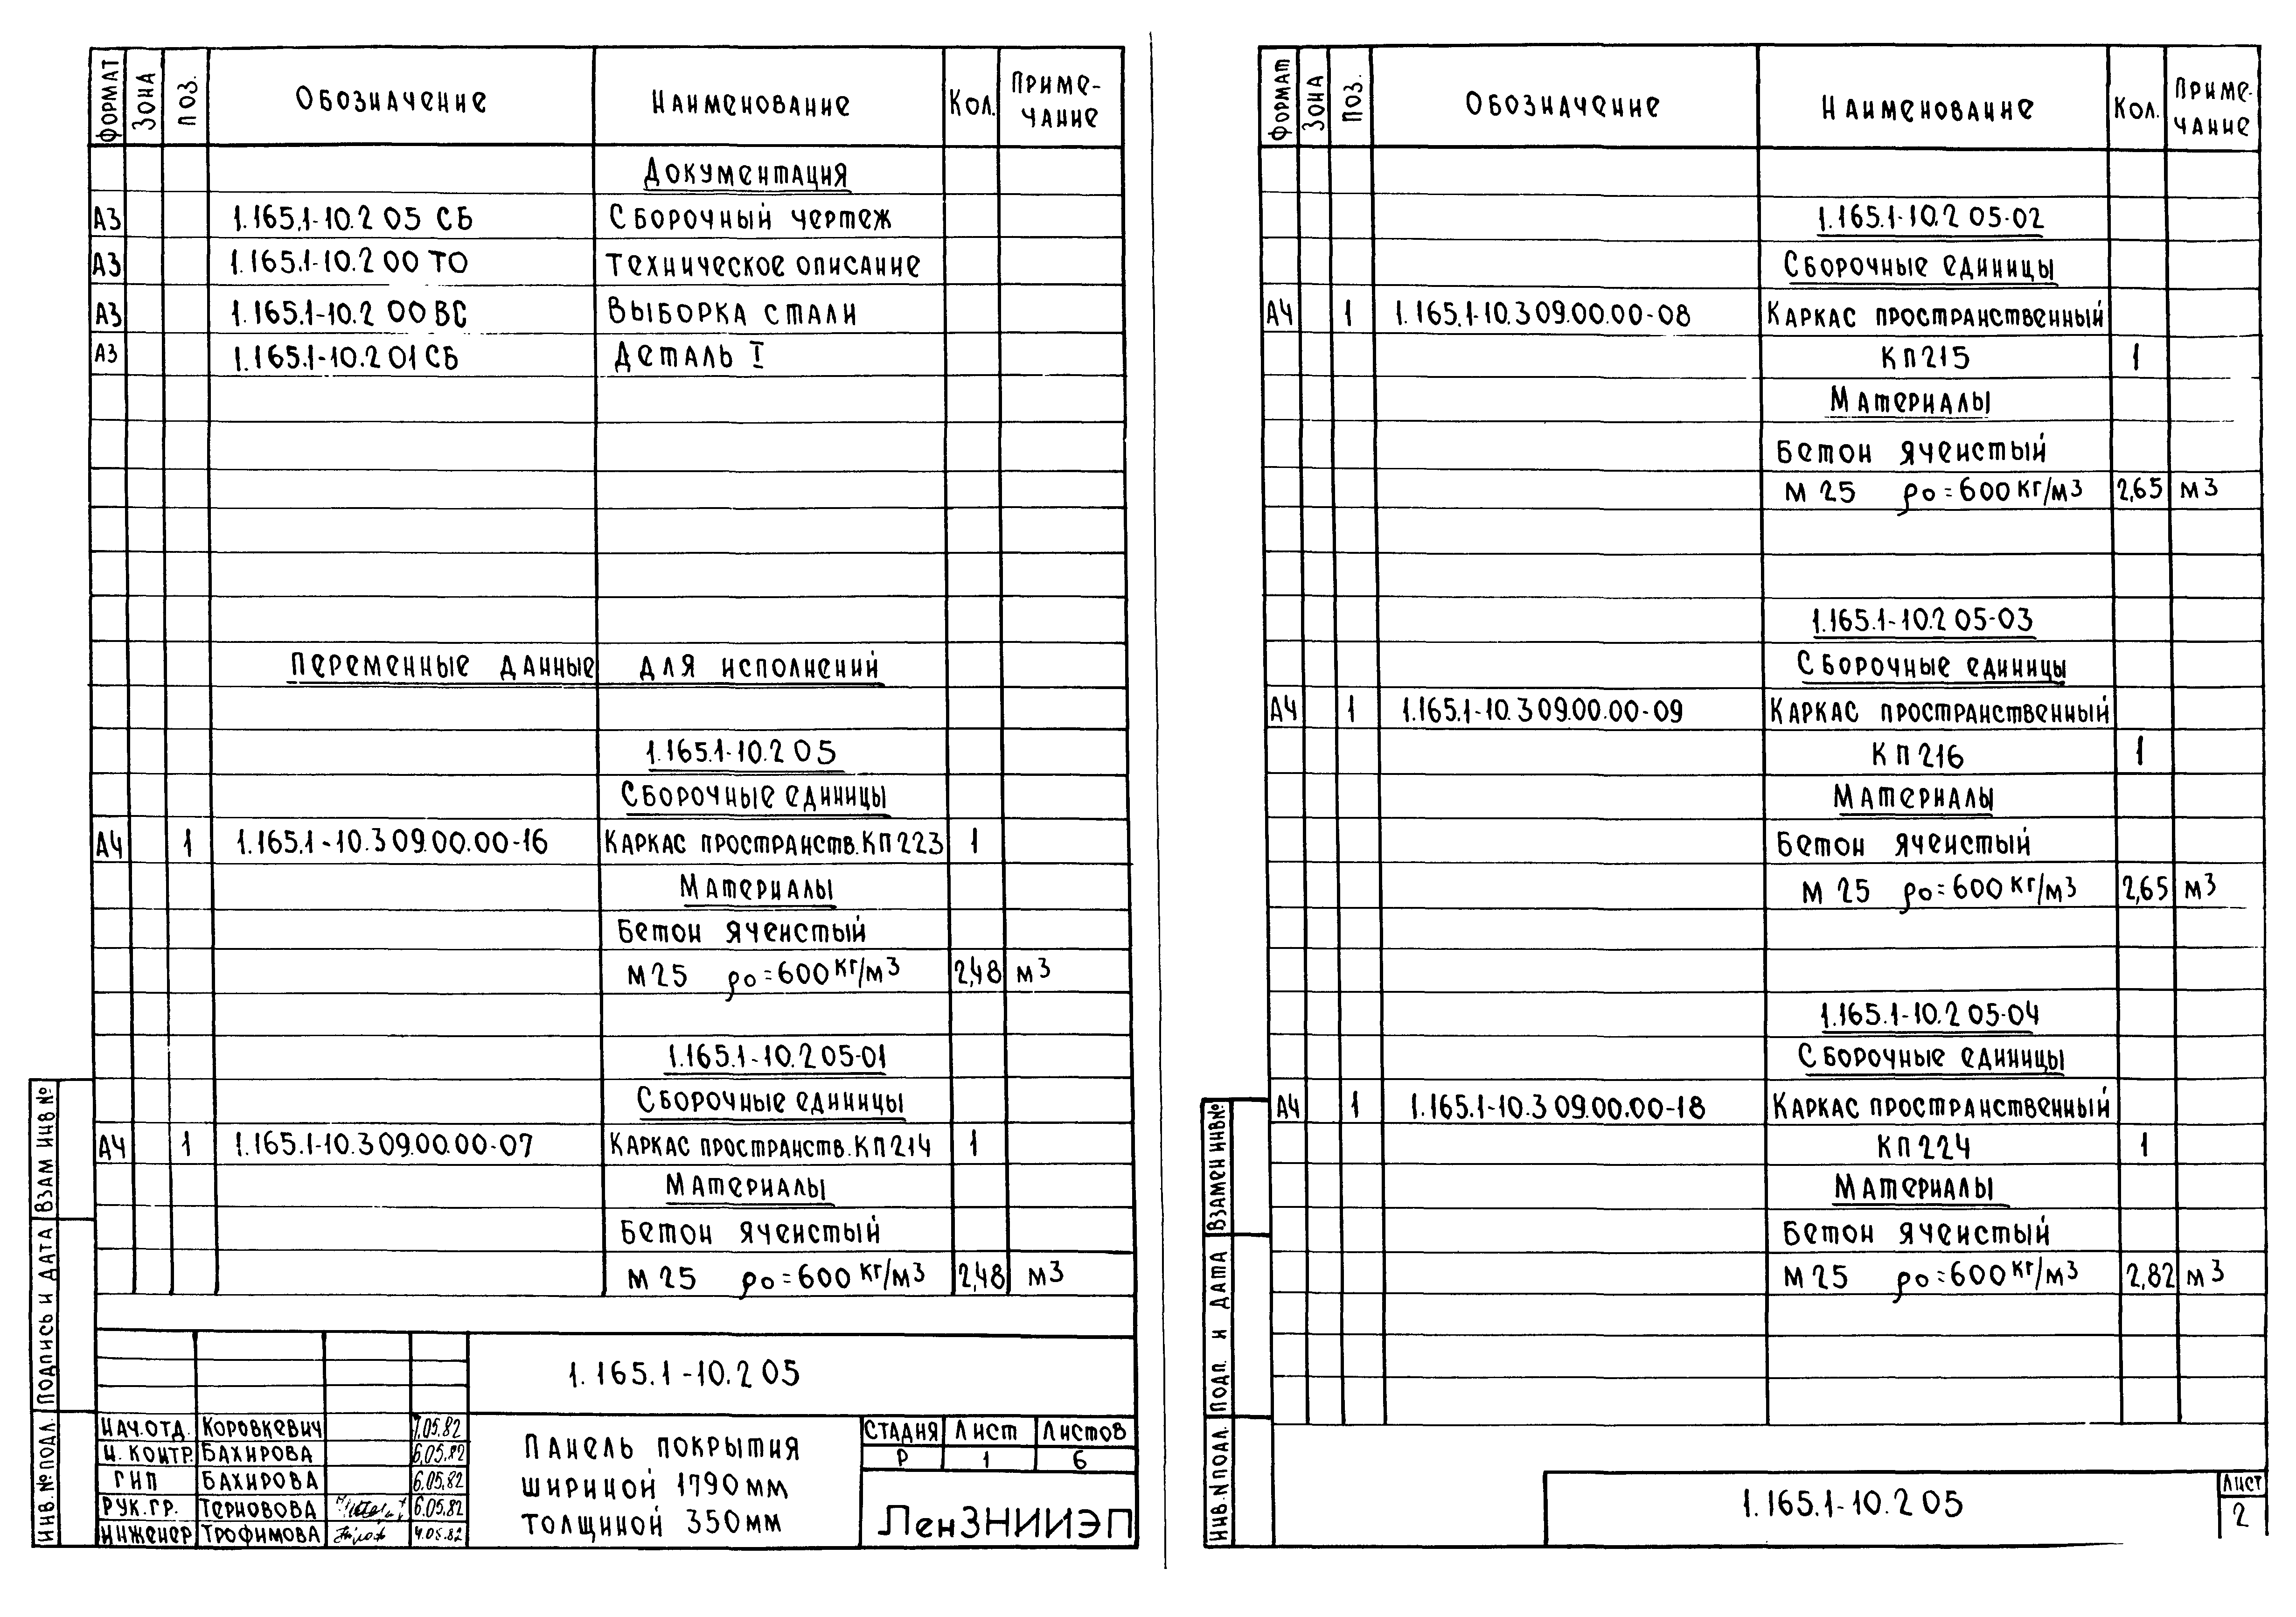 ФОРМАТ ЗОНА ПОЗ. ОБОЗНАЧЕНИЕ НАИМЕНОВАНИЕ КОЛ. ПРИМЕ-
ЧАНИЕ
ДОКУМЕНТАЦИЯ
А3 1.165.1-10.2 05 СБ СБОРОЧНЫЙ ЧЕРТЕЖ
А3 1.165.1-10.2 00 ТО ТЕХНИЧЕСКОЕ ОПИСАНИЕ
А3 1.165.1-10.2 00 ВС ВЫБОРКА СТАЛИ
А3 1.165.1-10.2 01 СБ ДЕТАЛЬ I
ПЕРЕМЕННЫЕ ДАННЫЕ ДЛЯ ИСПОЛНЕНИЙ
1.165.1-10.2 05
СБОРОЧНЫЕ ЕДИНИЦЫ
А4 1 1.165.1-10.3 09.00.00-16 КАРКАС ПРОСТРАНСТВ. КП223 1
МАТЕРИАЛЫ
БЕТОН ЯЧЕИСТЫЙ
М 25 ρо=600 кг/м3 2,48 м3
1.165.1-10.2 05-01
СБОРОЧНЫЕ ЕДИНИЦЫ
А4 1 1.165.1-10.3 09.00.00-07 КАРКАС ПРОСТРАНСТВ. КП214 1
МАТЕРИАЛЫ
БЕТОН ЯЧЕИСТЫЙ
М 25 ρо=600 кг/м3 2,48 м3
1.165.1-10.2 05
НАЧ.ОТД. КОРОВКЕВИЧ 7.05.82
Н. КОНТР. БАХИРОВА 6.05.82
ГИП БАХИРОВА 6.05.82
РУК.ГР. ТЕРНОВОВА 6.05.82
ИНЖЕНЕР ТРОФИМОВА 4.05.82
ПАНЕЛЬ ПОКРЫТИЯ
ШИРИНОЙ 1790мм
ТОЛЩИНОЙ 350мм
СТАДИЯ ЛИСТ ЛИСТОВ
Р 1 6
ЛенЗНИИЭП
ИНВ.№ПОДЛ. ПОДПИСЬ И ДАТА ВЗАМ ИНВ №
ФОРМАТ ЗОНА ПОЗ. ОБОЗНАЧЕНИЕ НАИМЕНОВАНИЕ КОЛ. ПРИМЕ-
ЧАНИЕ
1.165.1-10.2 05-02
СБОРОЧНЫЕ ЕДИНИЦЫ
А4 1 1.165.1-10.3 09.00.00-08 КАРКАС ПРОСТРАНСТВЕННЫЙ
КП215 1
МАТЕРИАЛЫ
БЕТОН ЯЧЕИСТЫЙ
М 25 ρо=600 кг/м3 2,65 м3
1.165.1-10.2 05-03
СБОРОЧНЫЕ ЕДИНИЦЫ
А4 1 1.165.1-10.3 09.00.00-09 КАРКАС ПРОСТРАНСТВЕННЫЙ
КП216 1
МАТЕРИАЛЫ
БЕТОН ЯЧЕИСТЫЙ
М 25 ρо=600 кг/м3 2,65 м3
1.165.1-10.2 05-04
СБОРОЧНЫЕ ЕДИНИЦЫ
А4 1 1.165.1-10.3 09.00.00-18 КАРКАС ПРОСТРАНСТВЕННЫЙ
КП224 1
МАТЕРИАЛЫ
БЕТОН ЯЧЕИСТЫЙ
М 25 ρо=600 кг/м3 2,82 м3
1.165.1-10.2 05
ЛИСТ
2
ИНВ.№ПОДЛ. ПОДП. И ДАТА ВЗАМЕН ИНВ№